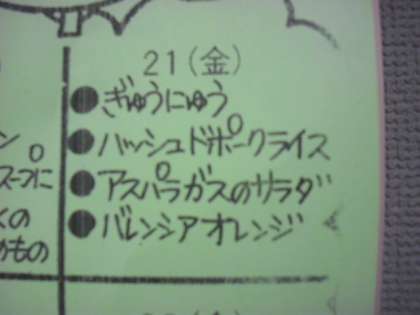 21(金)
●ぎゅうにゅう
●ハッシュドポークライス
●アスパラガスのサラダ
●バレンシアオレンジ
ン
スープに
くの
めもの